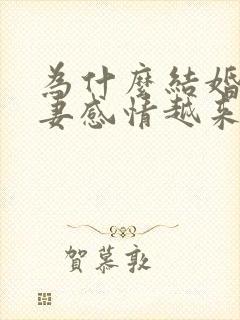 為什麼結婚
妻感情越來
賀慕敦